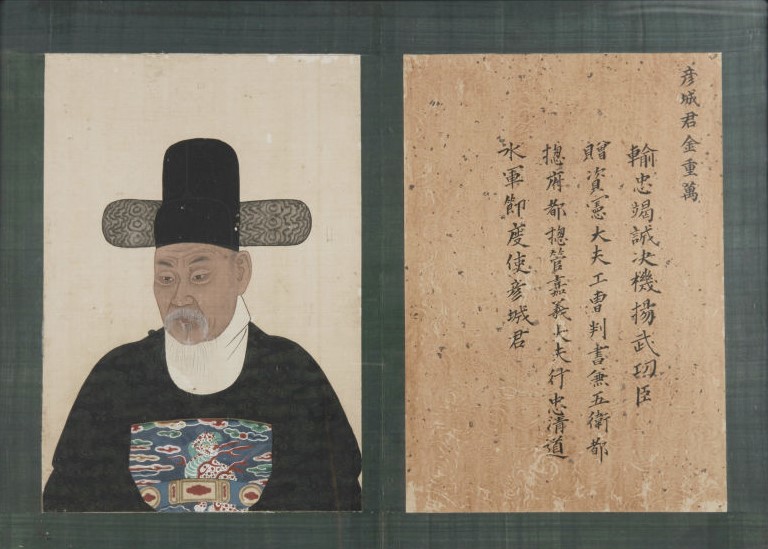 彦城君金重萬
輸忠竭誠决機揚武㓛臣
贈資憲大夫工曺判書兼五衛都
摠府都摠管嘉義大夫行忠清道
水軍節度使彦城君